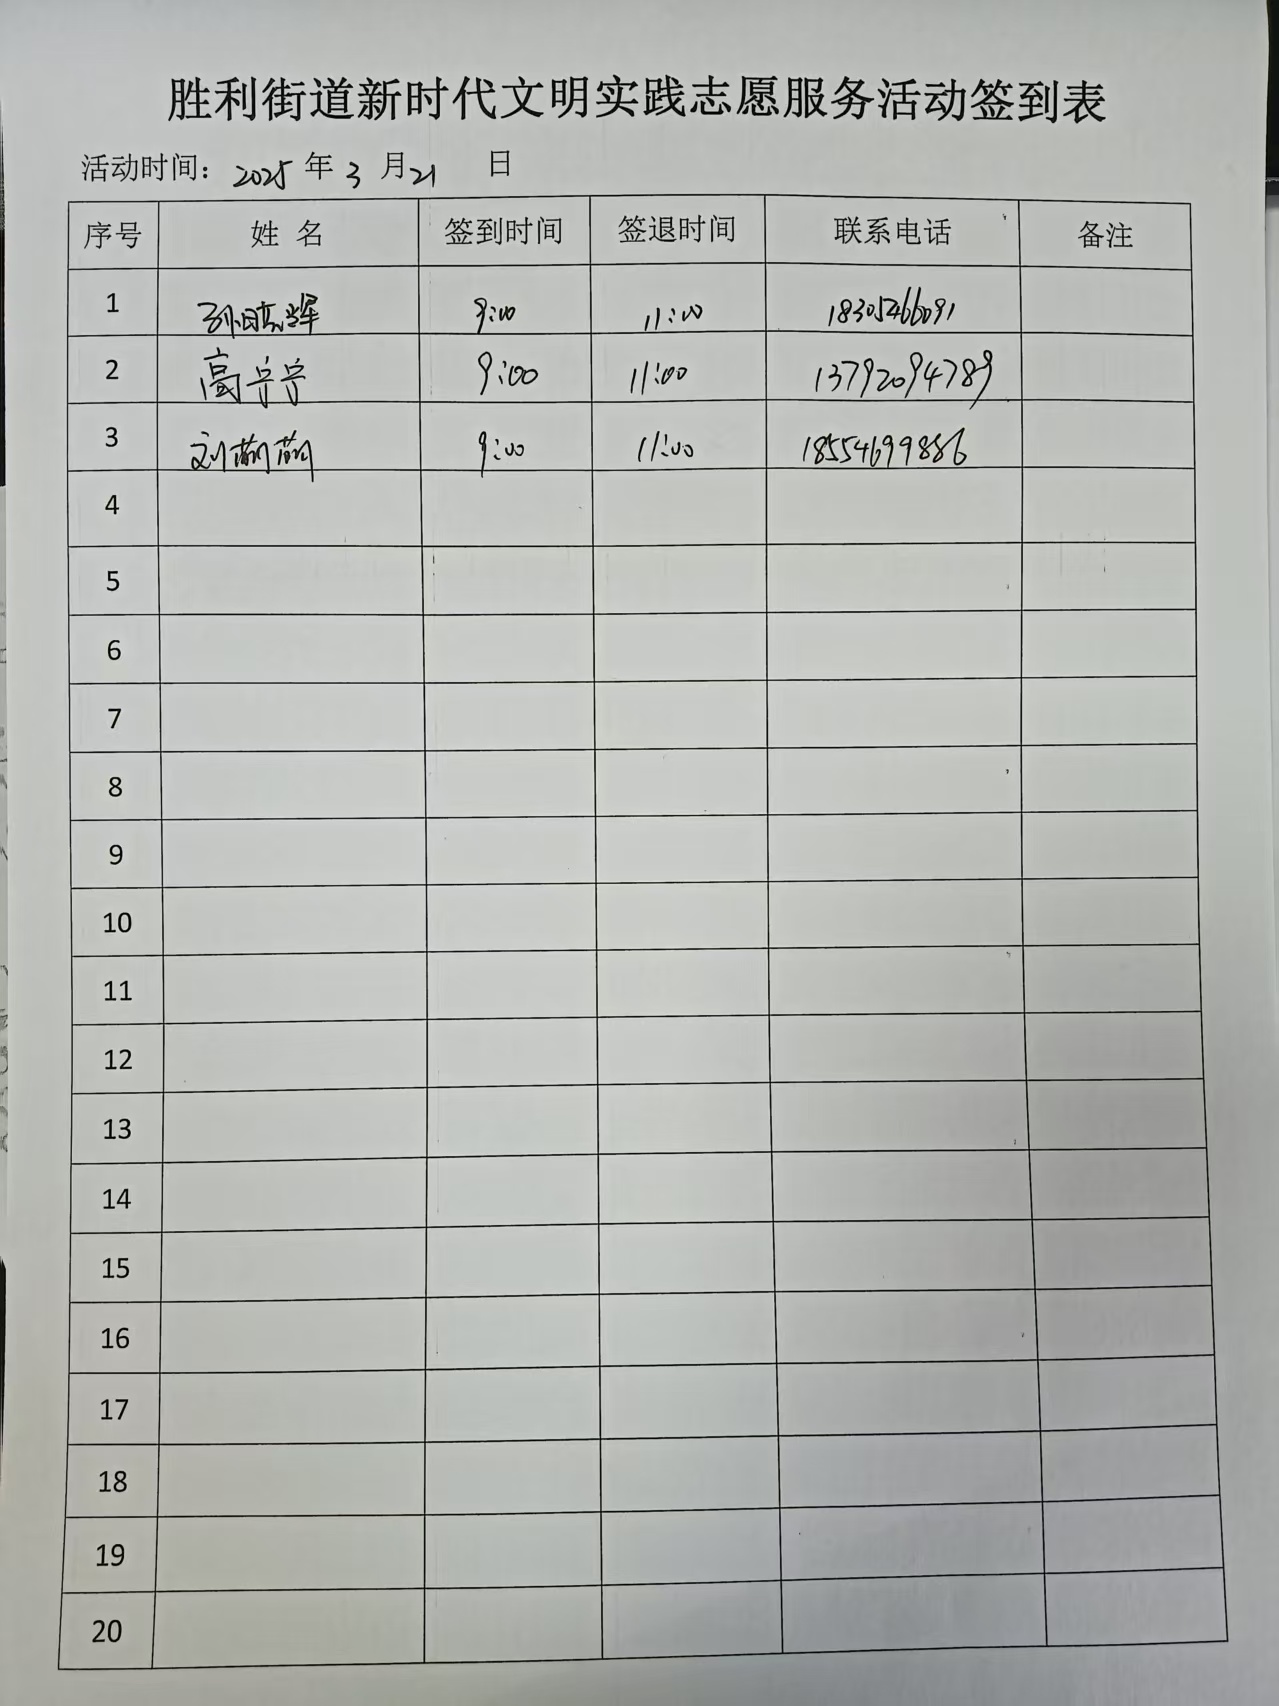 胜利街道新时代文明实践志愿服务活动签到表
活动时间：2025年3月21日
序号 姓名 签到时间 签退时间 联系电话 备注
1 孙晓辉 9:00 11:00 18305466091
2 高宁宁 9:00 11:00 13792094789
3 刘萌萌 9:00 11:00 18554699886
4
5
6
7
8
9
10
11
12
13
14
15
16
17
18
19
20